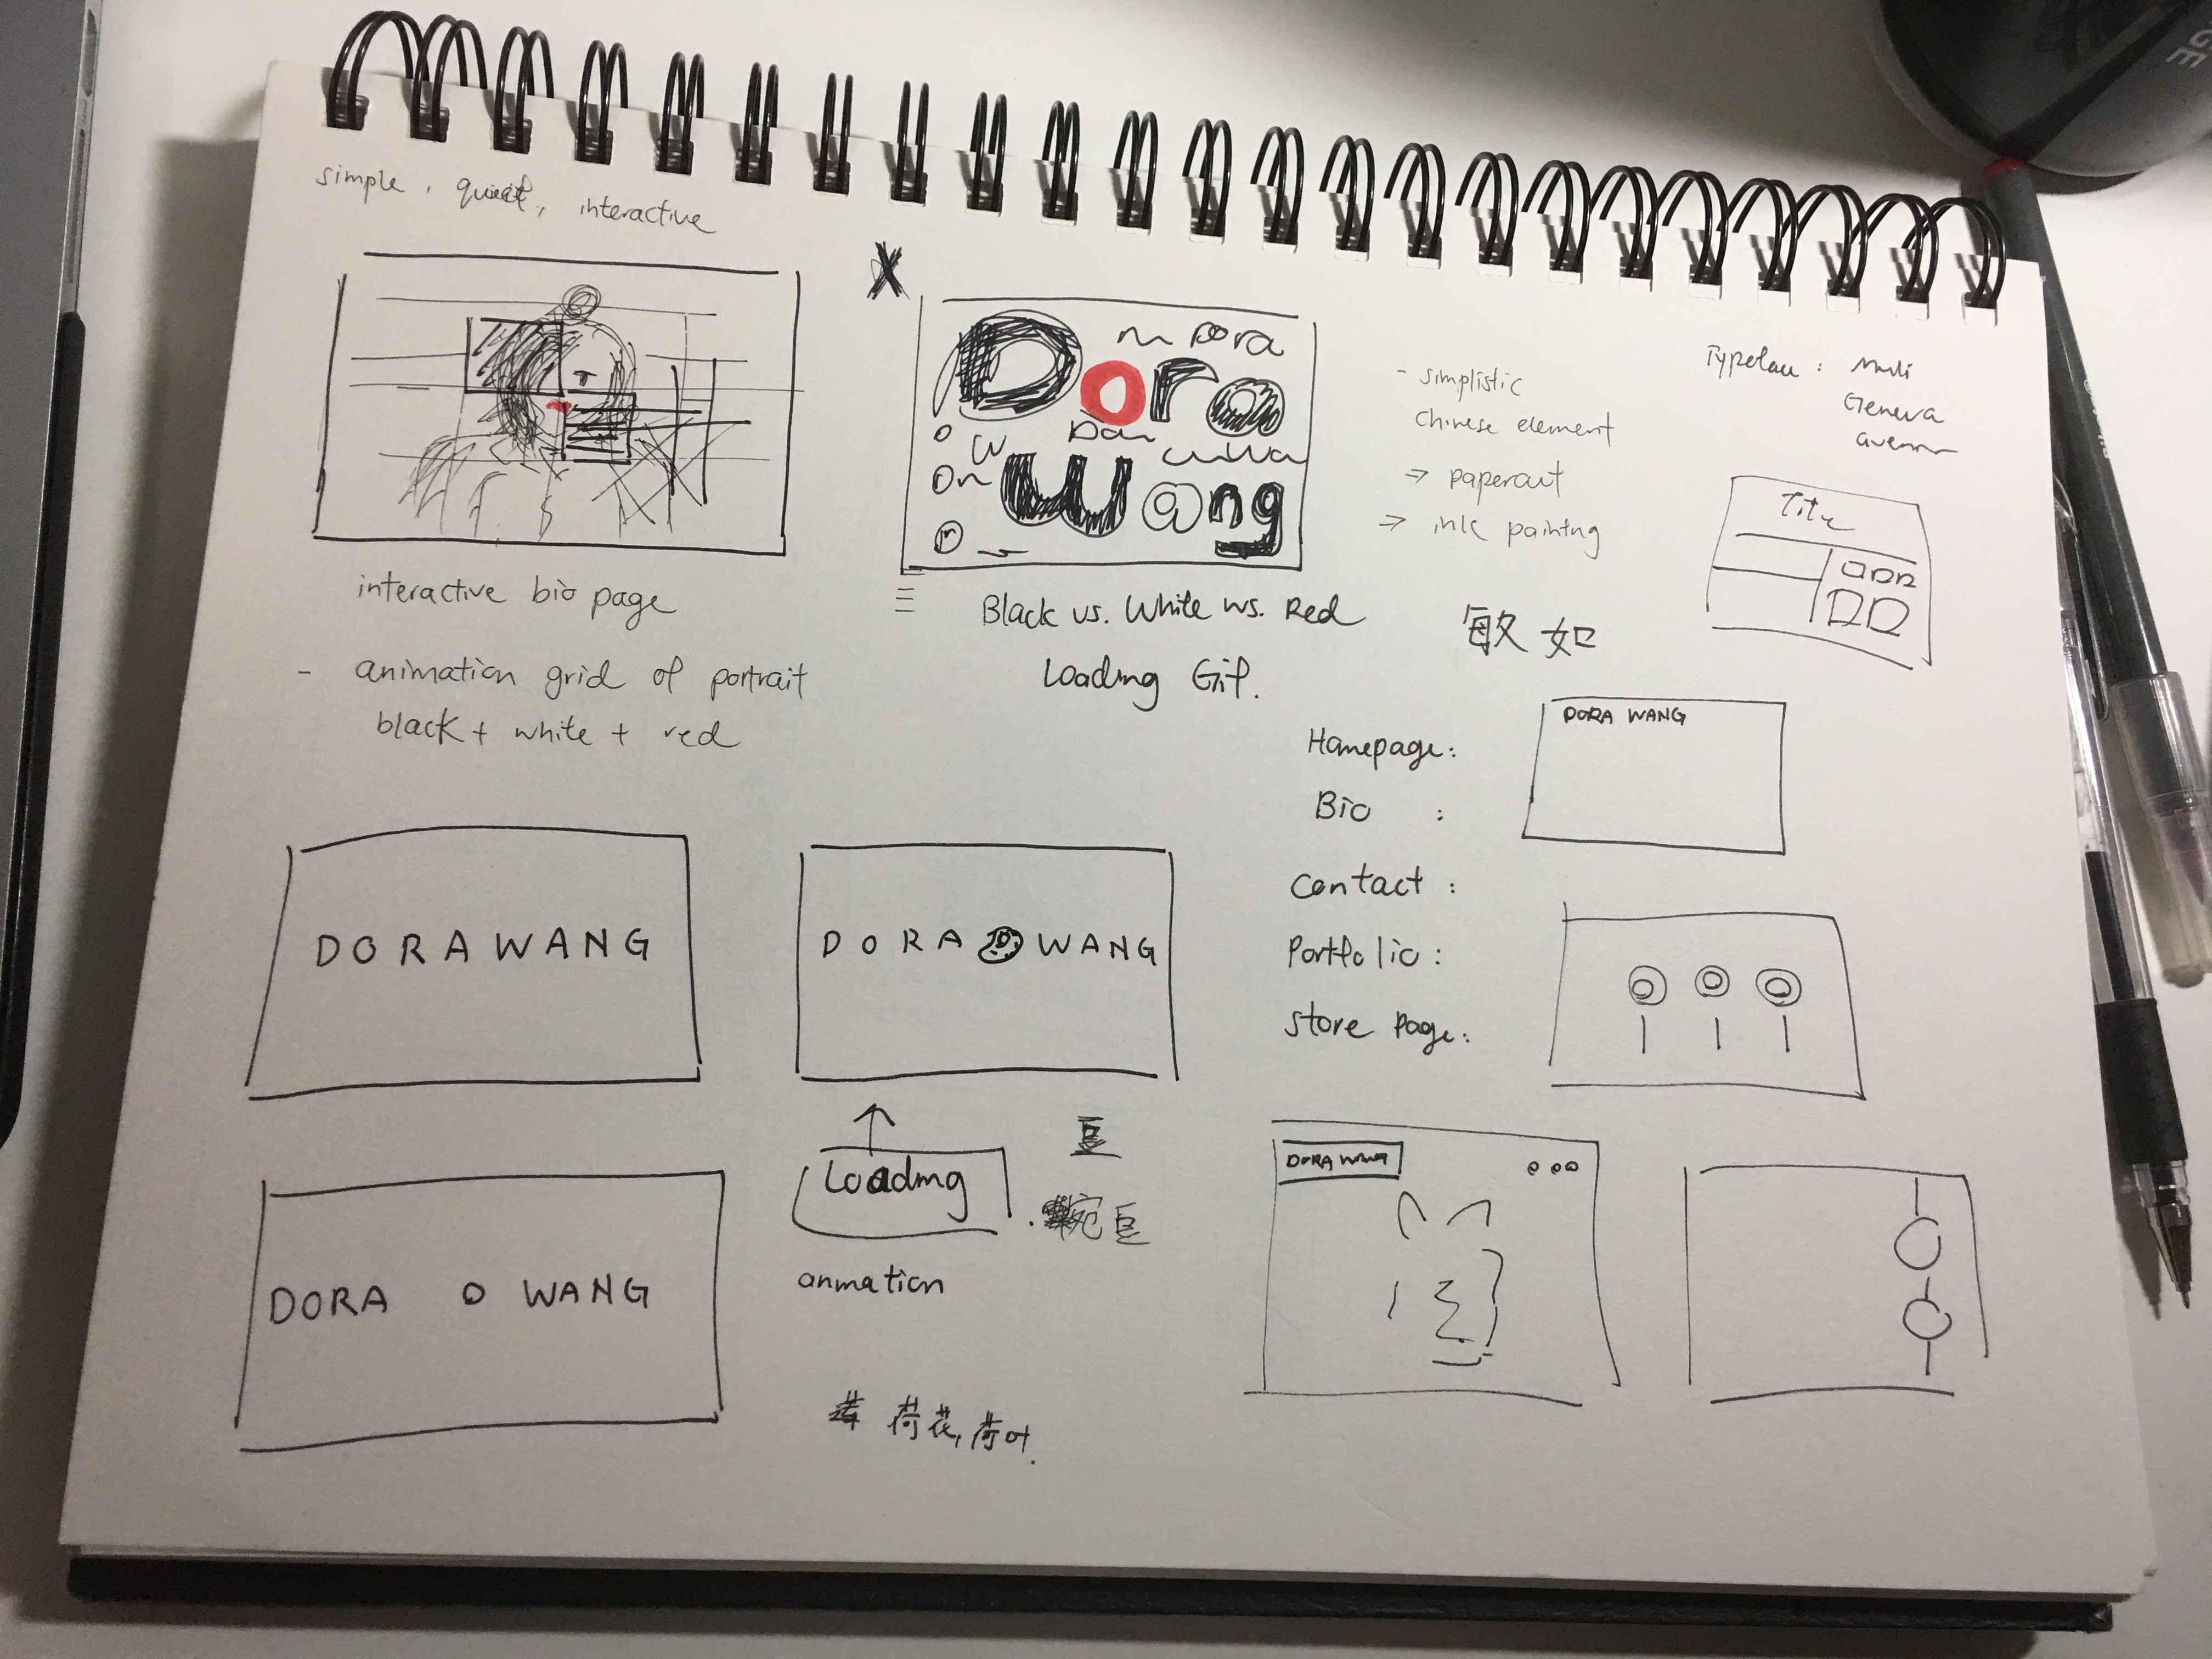 simple, quiet, interactive
Dora
Dora
Wang
interactive bio page
- animation grid of portrait
black + white + red
Black vs. White vs. Red
Loading Gif.
- simplistic
Chinese element
→ papercut
→ ink painting
Typeface : Muli
Geneva
Title
敏 如
DORA WANG
Homepage:
Bio :
Contact :
Portfolio :
Store Page:
DORA WANG
DORA WANG
DORA O WANG
Loading
anmation
豆
豌豆
荷花, 荷叶.
DORA WANG